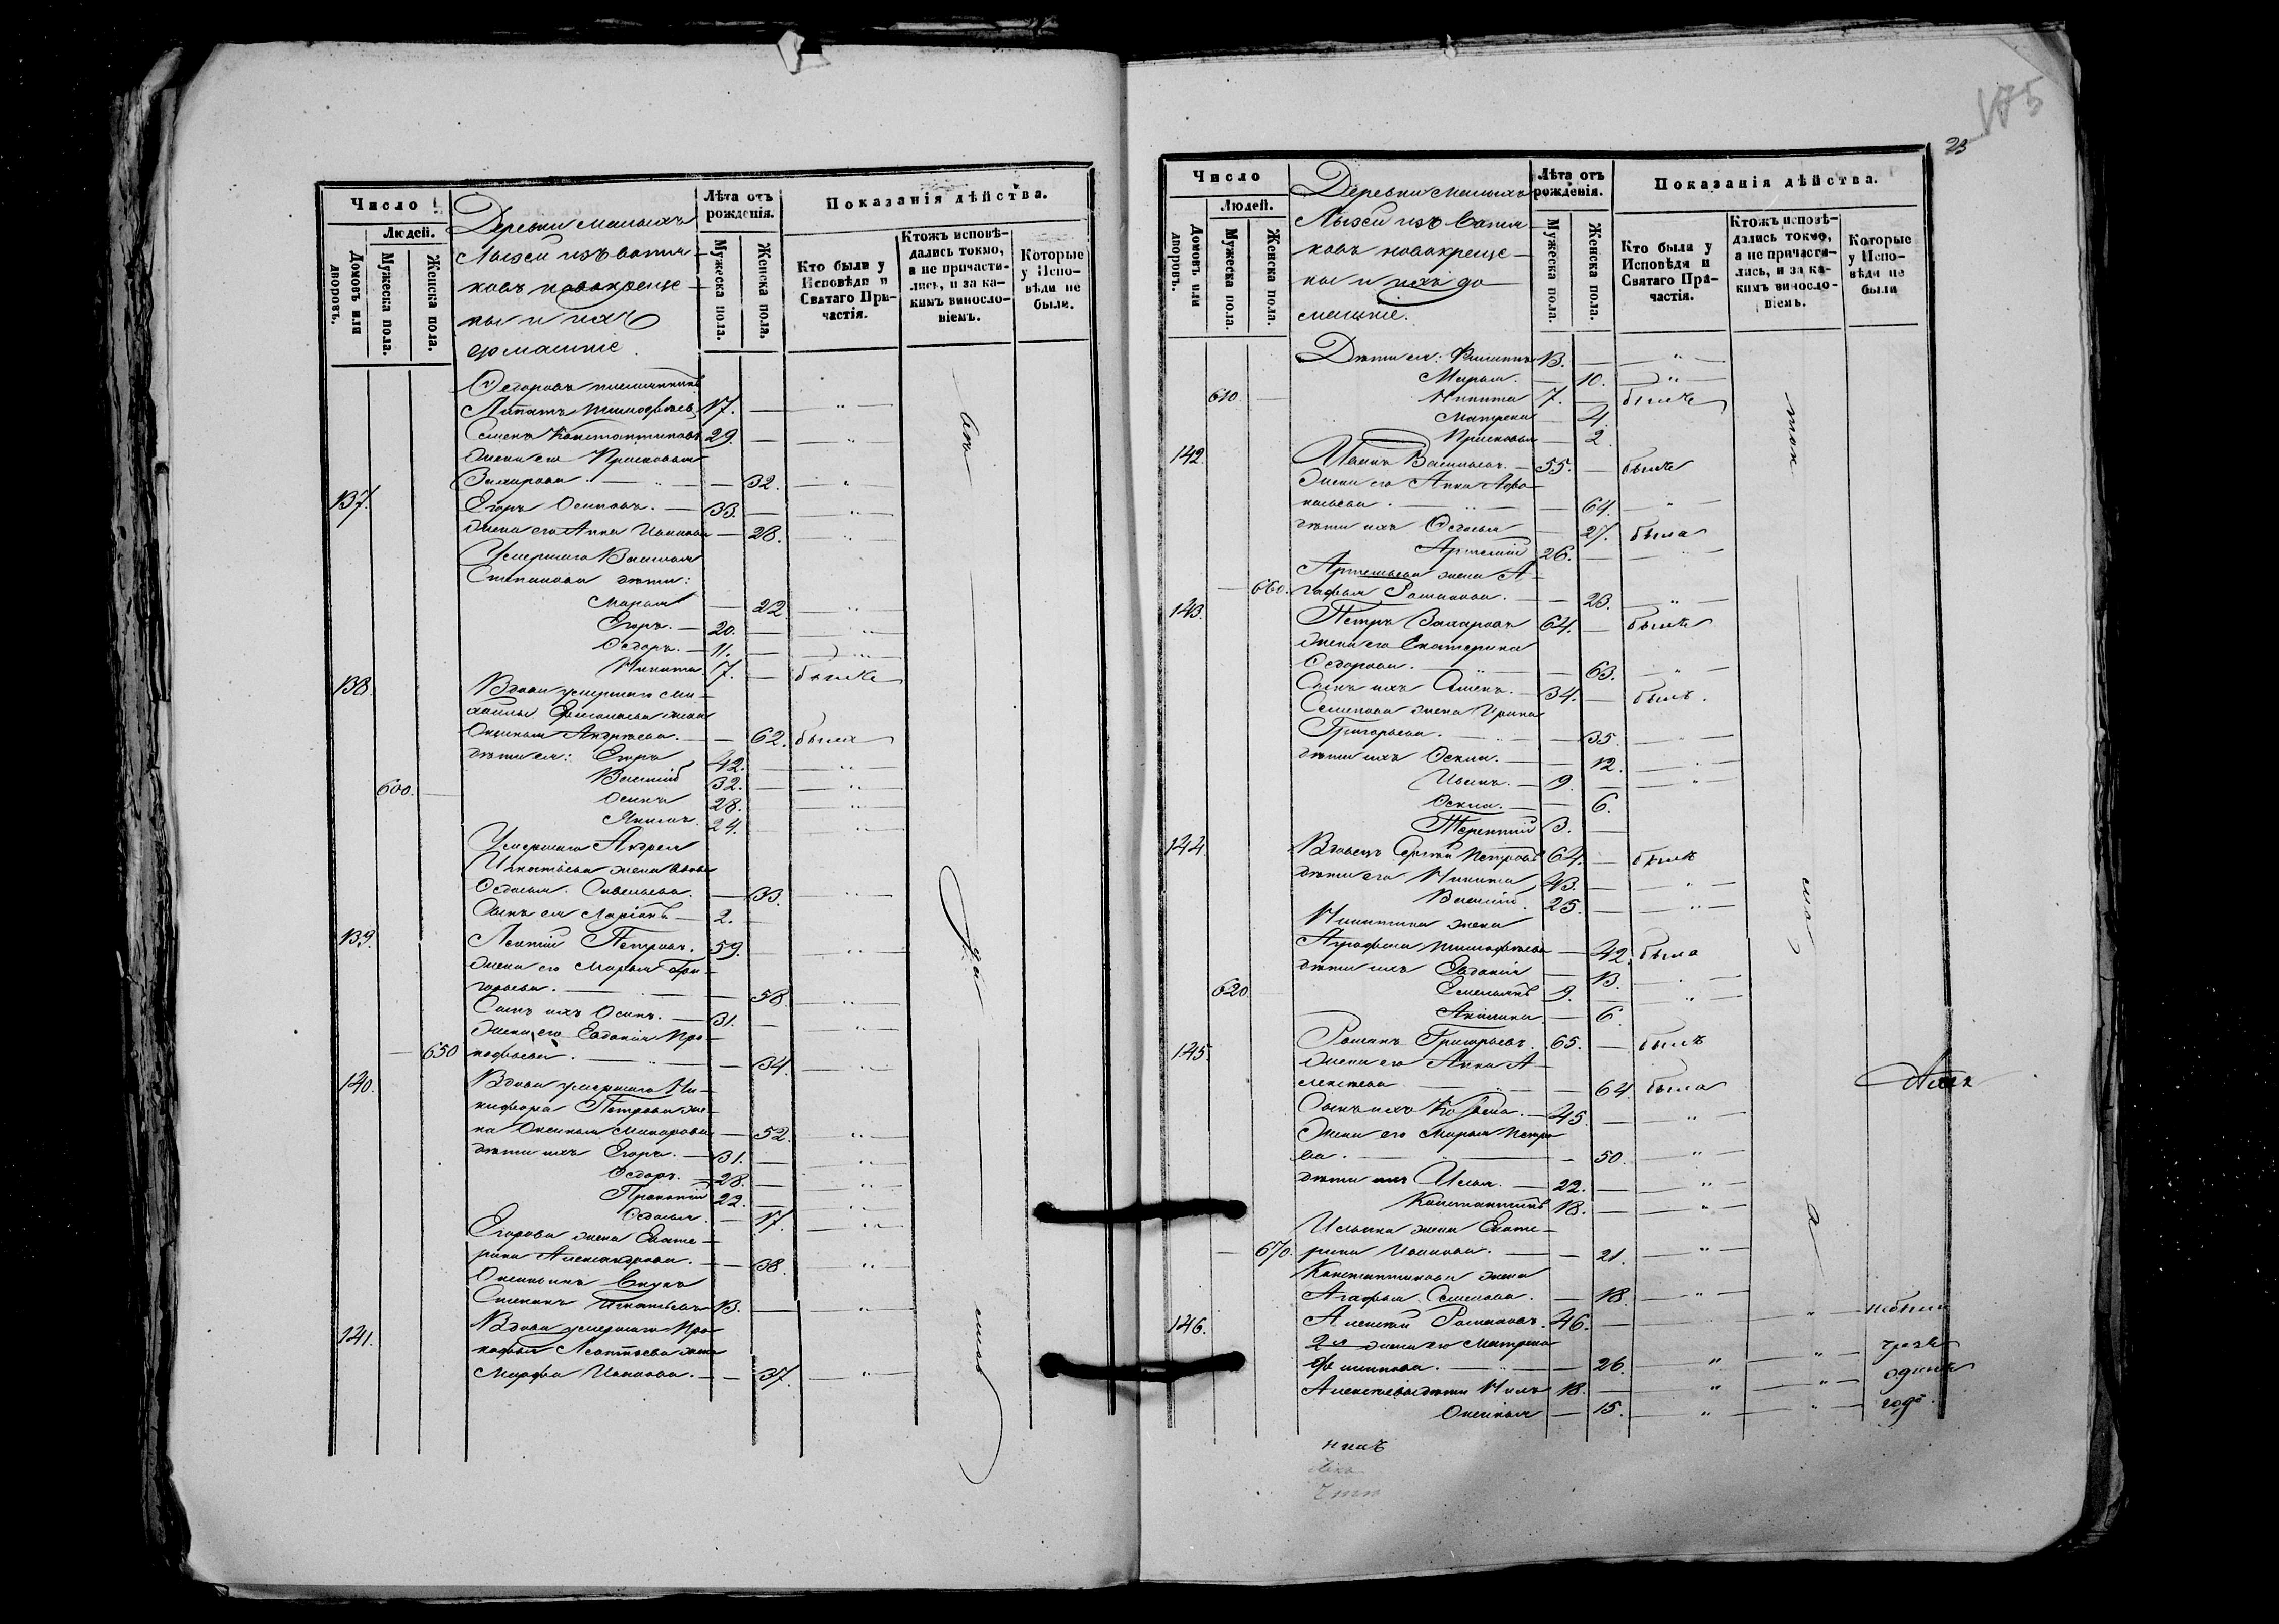 Число
Людей.
Домовъ или дворовъ.
Мужеска пола.
Женска пола.
Деревни Малыхъ
Лызей изъ вотя-
ковъ новокреще-
ны и ихъ
домашніе.
Лѣта отъ рожденія.
Мужеска пола.
Женска пола.
Показанія дѣйства.
Кто были у Исповѣди и Святаго Причастія.
Ктожъ исповѣ-
дались токмо,
а не причасти-
лись, и за ка-
кимъ винословіемъ.
Которые у Исповѣди не были.
Ѳедоровъ племянникъ
Тимофѣевъ 17. — „ —
Семенъ Константиновъ 29. — „ —
жена его Прасковья
Захарова — 32. — „
137. Егоръ Осиповъ. — 33. — „
жена его Анна Иванова — 28. — „
Умершаго Василья
Степанова дѣти:
Марья — 22 — „
Егоръ. — 20. — „
Ѳедоръ. — 11. — „
Никита 7. — былъ
138 Вдова умершаго Ми-
хаила жена
Андреева. — 62. была
дѣти ея: Егоръ 42. — „
Василій 32. — „
600. Осипъ 28. — „
Якимъ. 24. — „
Умершаго Андрея
Игнатьева жена вдова
Ѳедосья Савельева. — 33. — „
Сынъ ея Ларіонъ — 2.
139. Леонтій Петровъ. 59. — „
жена его Марья Гри-
горьева. — 58. — „
Сынъ ихъ Осипъ. — 31. — „
жена его Евдокія Про-
650 кофьева. — 34. — „
140. Вдова умершаго Ни-
кифора Петрова же-
на Оксинья Макарова — 52. „
дѣти ихъ Егоръ. — 31. — „
Ѳедоръ. — 28. — „
Прокопій 22. — „
Ѳедосья. — 17. — „
Егорова жена Екате-
рина Александрова. — 38. „
Оксиньинъ внукъ
Степанъ Игнатьевъ 13. — „
141. Вдова умершаго Про-
кофья Леонтьева жена
Марфа Иванова. — 37. — „
175
23
Число
Людей.
Домовъ или дворовъ.
Мужеска пола.
Женска пола.
Деревни Малыхъ
Лызей изъ вотя-
ковъ новокреще-
ны и ихъ до-
машніе.
Лѣта отъ рожденія.
Мужеска пола.
Женска пола.
Показанія дѣйства.
Кто были у Исповѣди и Святаго Причастія.
Ктожъ исповѣ-
дались токмо,
а не причасти-
лись, и за ка-
кимъ винословіемъ.
Которые у Исповѣди не были
Дѣти ея: Филиппъ 13. — „ —
Марья. — 10. — „ —
610. Никита 7. — былъ
Матрена — 4
Прасковья — 2
142. Иванъ Васильевъ. — 55. — былъ
жена его Анна Афо-
насьева. — 64. — „
дѣти ихъ Ѳедосья — 27. была
Артемій 26. — „
Артемьева жена А-
660. гафья Романова. — 23. — „
143. Петръ Захаровъ 64. — былъ
жена его Екатерина
Ѳедорова. — 63. — „
Сынъ ихъ Семенъ. — 34. — былъ.
Семенова жена Ирина
Григорьева. — 35. — „
дѣти ихъ — 12. — „
Иванъ. — 9. — „
— 6.
Терентій 3. —
144. Вдовецъ Сергей Петровъ 64. — былъ
дѣти его Никита 43. — „
Василій. 25. — „
Никитина жена
Аграфена Тимофѣева — 42. была
дѣти ихъ Евдокія — 13. — „
620 Емельянъ 9. — „
Акилина — 6.
145. Романъ Григорьевъ. 65. — былъ
жена его Анна А-
лексѣева — 64. была
Сынъ ихъ Козьма. — 45. — „
жена его Марья Петро-
ва. — 50. — „
дѣти ихъ Илья. — 22. — „
Константинъ 18. — „
Ильина жена Екате-
670. рина Иванова. — 21. — „
Константинова жена
Агафья Семенова. — 18. — „
146. Алексѣй Романовъ. 46. — „ — небыли
2я жена его Матрена чрезъ
Филиппова. — 26. — „ — „ — одинъ
Алексѣевы дѣти Нилъ 18. — „ — „ — годъ.
Оксинья — 15. — „ — „